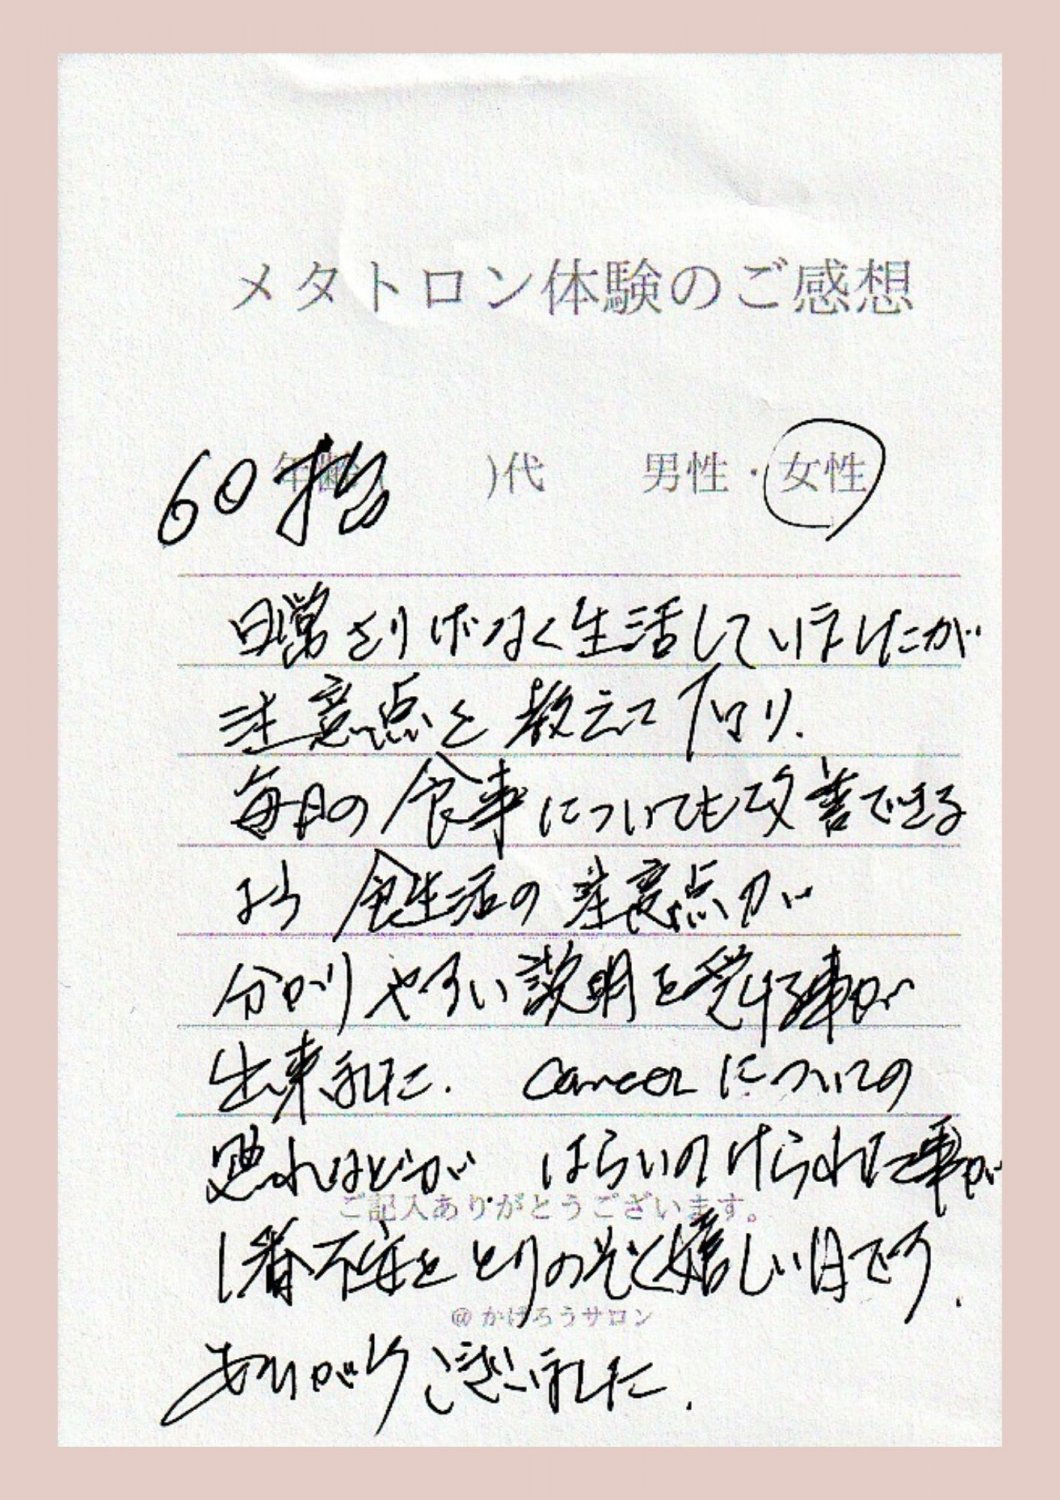 メタトロン体験のご感想
年齢( )代 男性・女性
60才
日常さりげなく生活していましたが
注意点を教えて下さり.
毎日の食事についても改善できる
よう 食生活の注意点が
分かりやすい説明を受ける事が
出来ました. cancerについての
恐れなどが はらいのけられた事が
ご記入ありがとうございます。
1番不安をとりのぞく嬉しい日です.
@かげろうサロン
ありがとうございました.